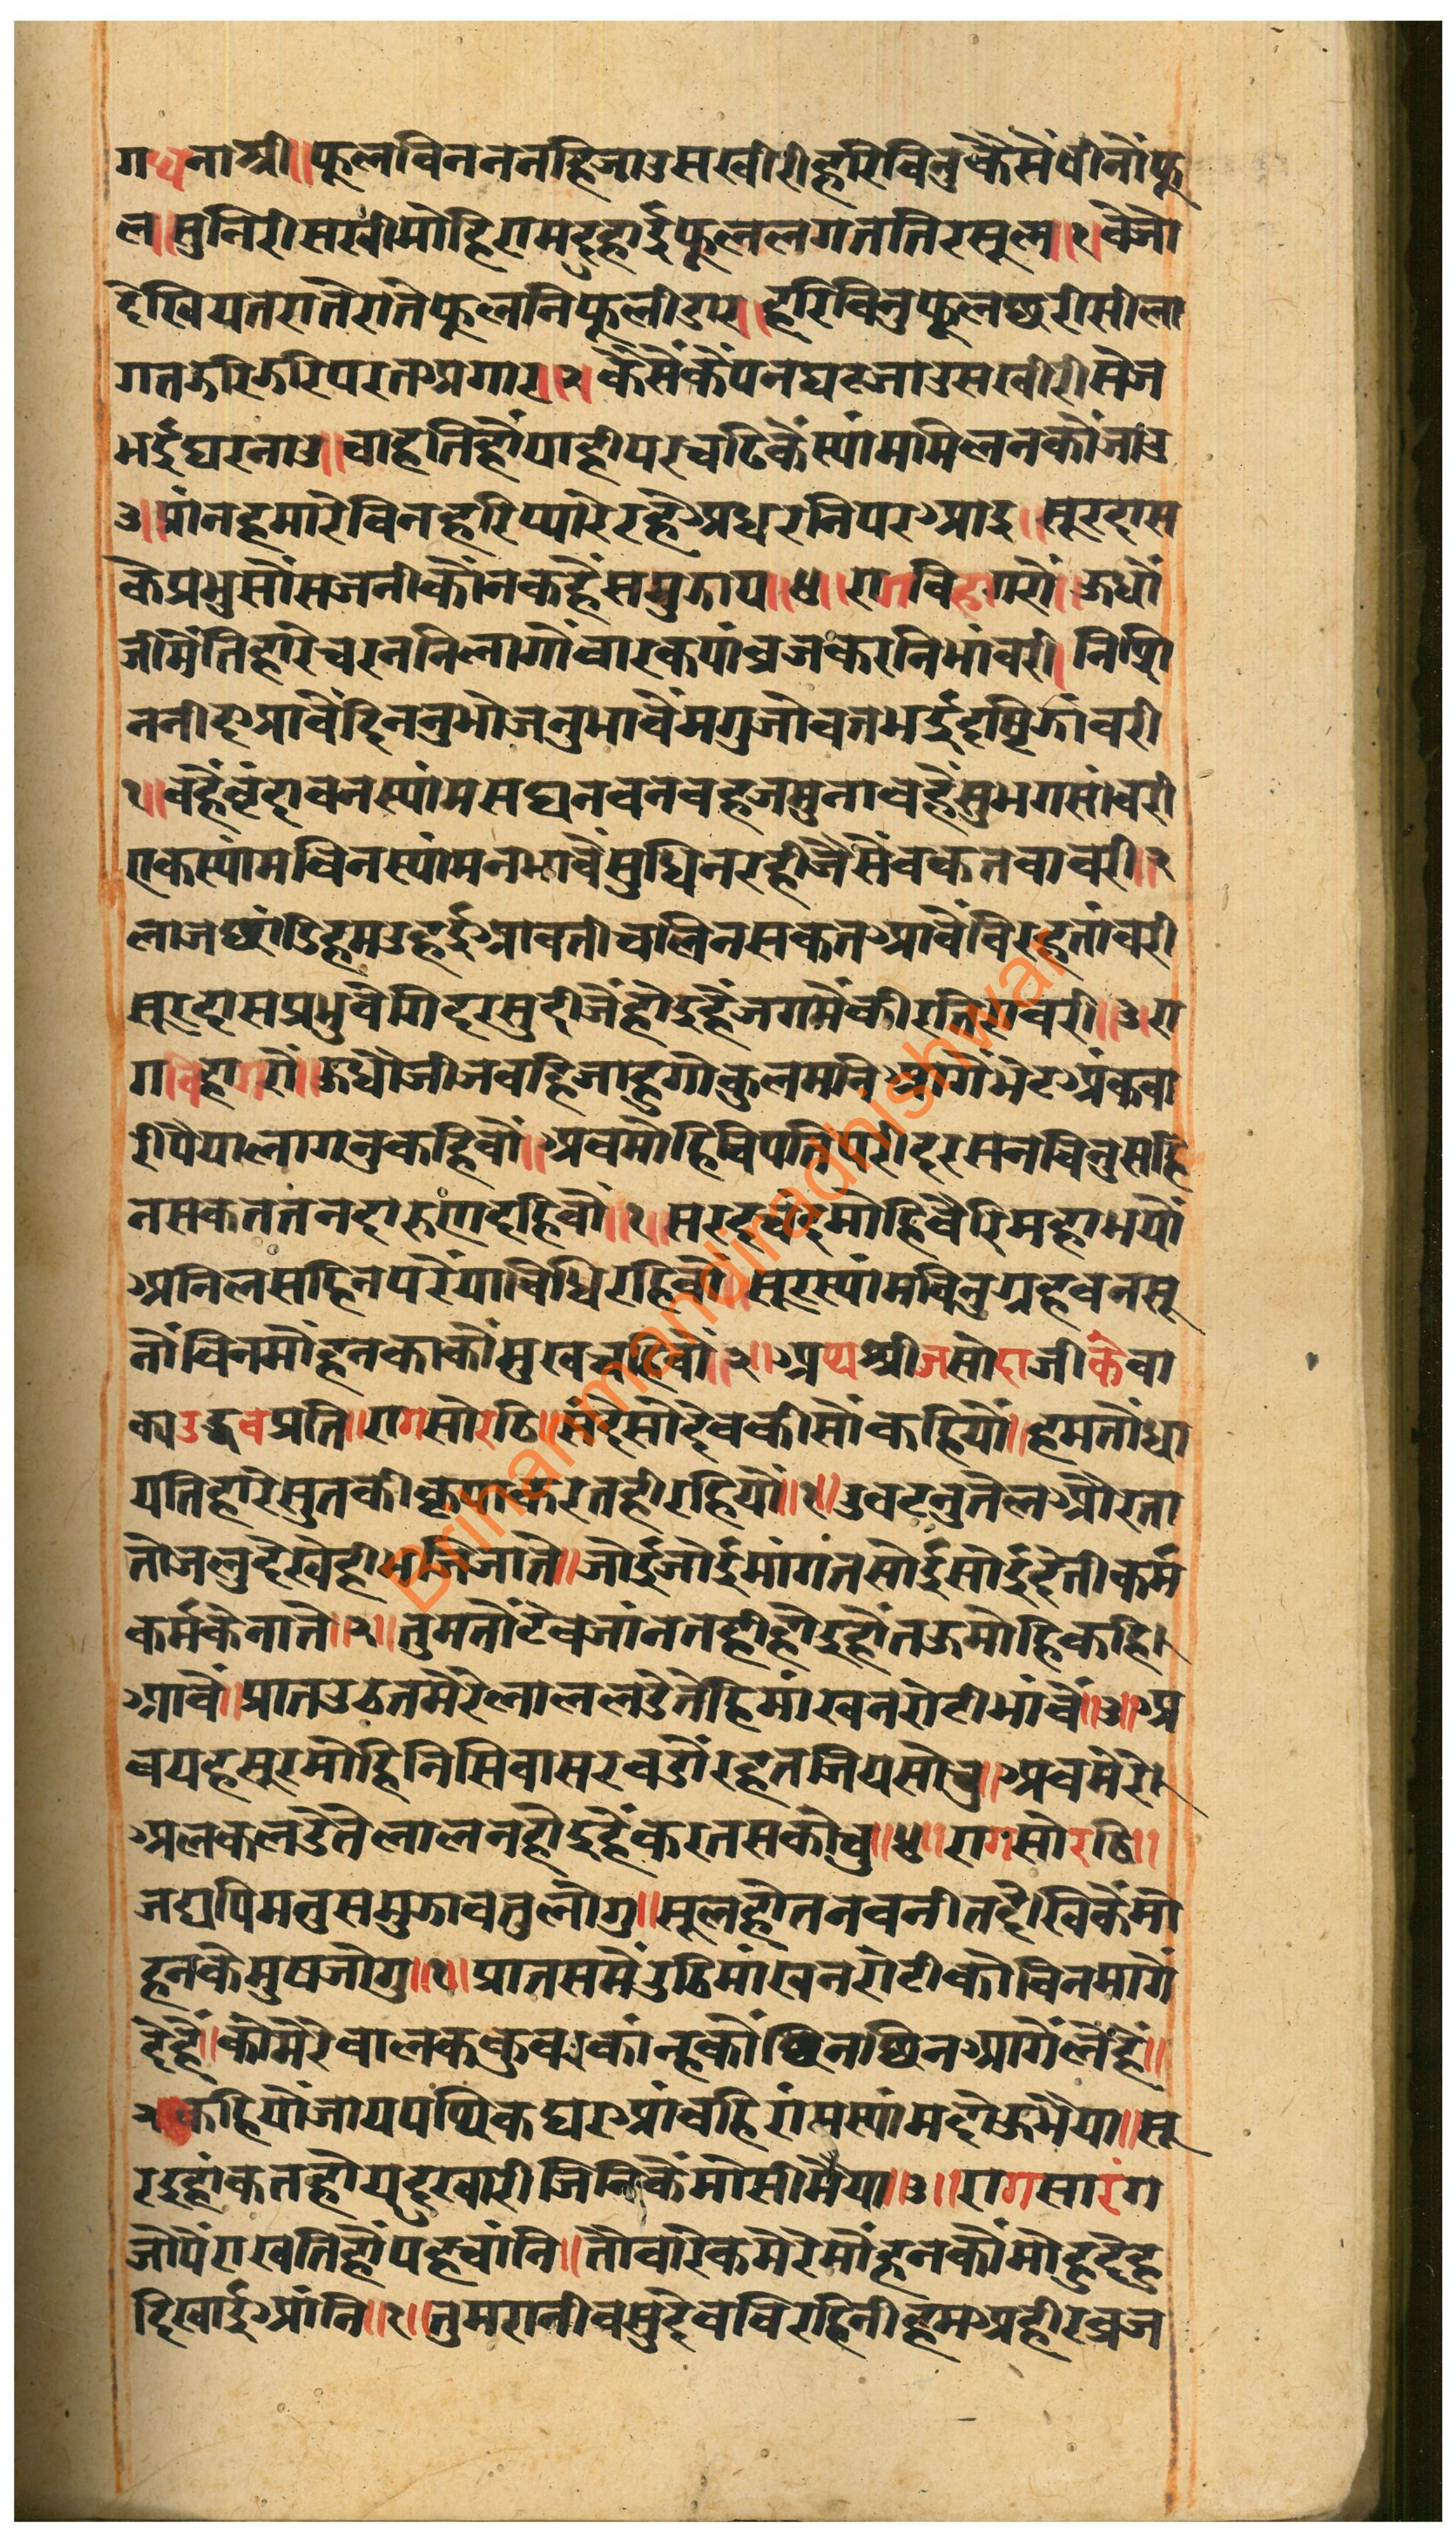 गधनाश्री॥फूलविनननहिजाउसखीरीहरिविनुकैसैंवीनौंफू
ल॥सुनिरीसखीमोहिरामदुहाईफूललगततिरसूल॥१॥वेजो
देखियतरातेरातेफूलनिफूलीडार॥हरिविनुफूलछरीसीला
गतझरिझरिपरतअगार॥२॥कैसैंकैंपनघटजाउसखीरीसेज
भईघरनाउ॥चाहतिहौंयाहीपरचढिकैंस्यांममिलनकौंजांउ
३॥प्रांनहमारेविनहरिप्यारेरहेअधरनिपरआइ॥सूरदास
केप्रभुसौंसजनीकौंनकहैंसमुझाय॥४॥रागविहागरौ॥ऊधौं
जीमैंतिहारेचरननिलागौंवारकयांव्रजकरनिभांवरी॥निशि
ननीदआवैंदिननुभोजनुभावैंमगुजोवतभईदृष्टिझांवरी
१॥वहैंवृंदावनस्यांमसघनवनवहजमुनावहैंसुभगसांवरी
एकस्यांमविनस्यांमनभावैंसुधिनरहीजैसेंवकतवावरी॥२
लाजछांडिहमउहईआवतीचलिनसकतआवैंविरहतांवरी
सूरदासप्रभुवेगिदरसुदीजैंहोइहैंजगमेंकीरतिरावरी॥३॥रा
गविहागरौं॥ऊधौजीजवहिजाहुगोकुलमनिआगेंभेटअंकवा
रीपैयालागनुकहिवौं॥अवमोहिविपतिपरीदरसनविनुसहि
नसकततनदारुणदहिवौं॥१॥सरदचंदुमोहिवैरिमहाभयौं
अनिलसहिनपरेंयाविधिरहिवौं॥सूरस्यांमविनुग्रहवनसू
नौंविनमोंहनकाकौंमुखचहिवौं॥२॥अथश्रीजसोदाजीकेवा
क्यउद्धवप्रति॥रागसोरठि॥संदेसोदेवकीसौंकहियौं॥हमतौंधा
यतिहारेसुतकीकृपाकरतहीरहियौं॥१॥उवटनुतेलऔरता
तोजलुदेखेहीभजिजाते॥जोईजोईमांगंतसोईसोईदेतीकर्म
कर्मकैनाते॥२॥तुमतौंटेवजांनतहीहोइहौंतऊमोहिकहि।
आवैं॥प्रातउठतमेरेलाललडेतेहिमांखनरोटीभांवैं॥३॥अ
वयहसूरमोहिनिसिवासरवडोंरहतजियसोचु॥अवमेरे।
अलकलडेतेलालनहोइहैंकरतसकोचु॥४॥रागसोरठि॥
जद्यपिमनुसमुझावतुलोगु॥सूलहोतनवनीतदेखिकैंमो
हनकेमुषजोगु॥१॥प्रातसमेंउठिमांखनरोटीकोविनमागें
देहैं॥कोमेरेवालककुवरकांन्हकौंछिनछिनआगेंलेहैं॥
२॥कहियौंजायपथिकघरआंवहिरांमस्यांमदोऊभैया॥सू
रइहांकतहोयदुखारीजिनिकेंमोसीमैया॥३॥रागसारंग
जोपैंराखतिहौंपहचांनि॥तोवारिकमेरेमोंहनकौंमोहुदेहु
दिखाईआंनि॥१॥तुमरानीवसुदेवविरहिनीहमअहीरव्रज